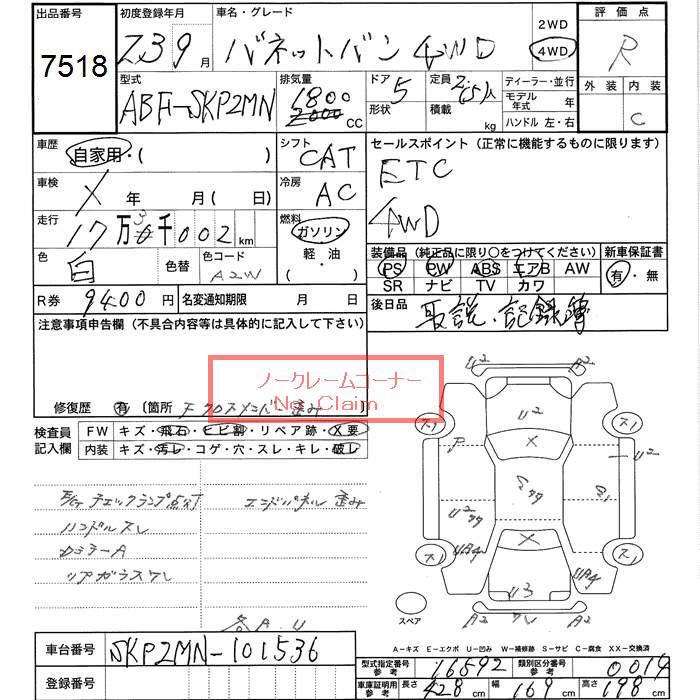 出品番号 初度登録年月 車名・グレード 2WD 評価点
7518 Z3 9月 バネットバン 4WD 4WD R
型式 排気量 ドア 定員 ディーラー・並行 外装 内装
ABF-SKP2MN 1800 2000 CC 5 形状 積載 kg モデル年式 年 C
ハンドル 左・右
車歴 自家用・( ) シフト CAT セールスポイント (正常に機能するものに限ります)
車検 X 年 月(日) 冷房 AC ETC
走行 17万3千002km 燃料 ガソリン 4WD
軽・油
色 白 色替 色コード A2W ( )
装備品 (純正品に限り○をつけてください) 新車保証書
PS PW ABS エアB AW 有・無
SR ナビ TV カワ
R券 9400円 名変通知期限 月 日 後日品 取説・記録簿
注意事項申告欄 (不具合内容等は具体的に記入して下さい)
ノークレームコーナー
No Claim
修復歴 有 〔箇所 Fクロスメンバー歪み
検査員記入欄 FW キズ・飛石・ヒビ割・リペア跡・X要
内装 キズ・汚レ・コゲ・穴・スレ・キレ・破レ
チェックランプ点灯 エンドパネル 歪み
ハンドルスレ
カラーA
リアガラススレ
各A.U
U2 A2
ス1 U2 ス1
P X U2
U2
ス1 UP4 X UP4 ス1
U3
スペア A2 A2
A-キズ E-エクボ U-凹み W-補修跡 S-サビ C-腐食 XX-交換済
車台番号 SKP2MN-101536
登録番号
型式指定番号 参考 16592 類別区分番号 参考 0014
車庫証明用 参考 長さ 428cm 幅 169cm 高さ 198cm